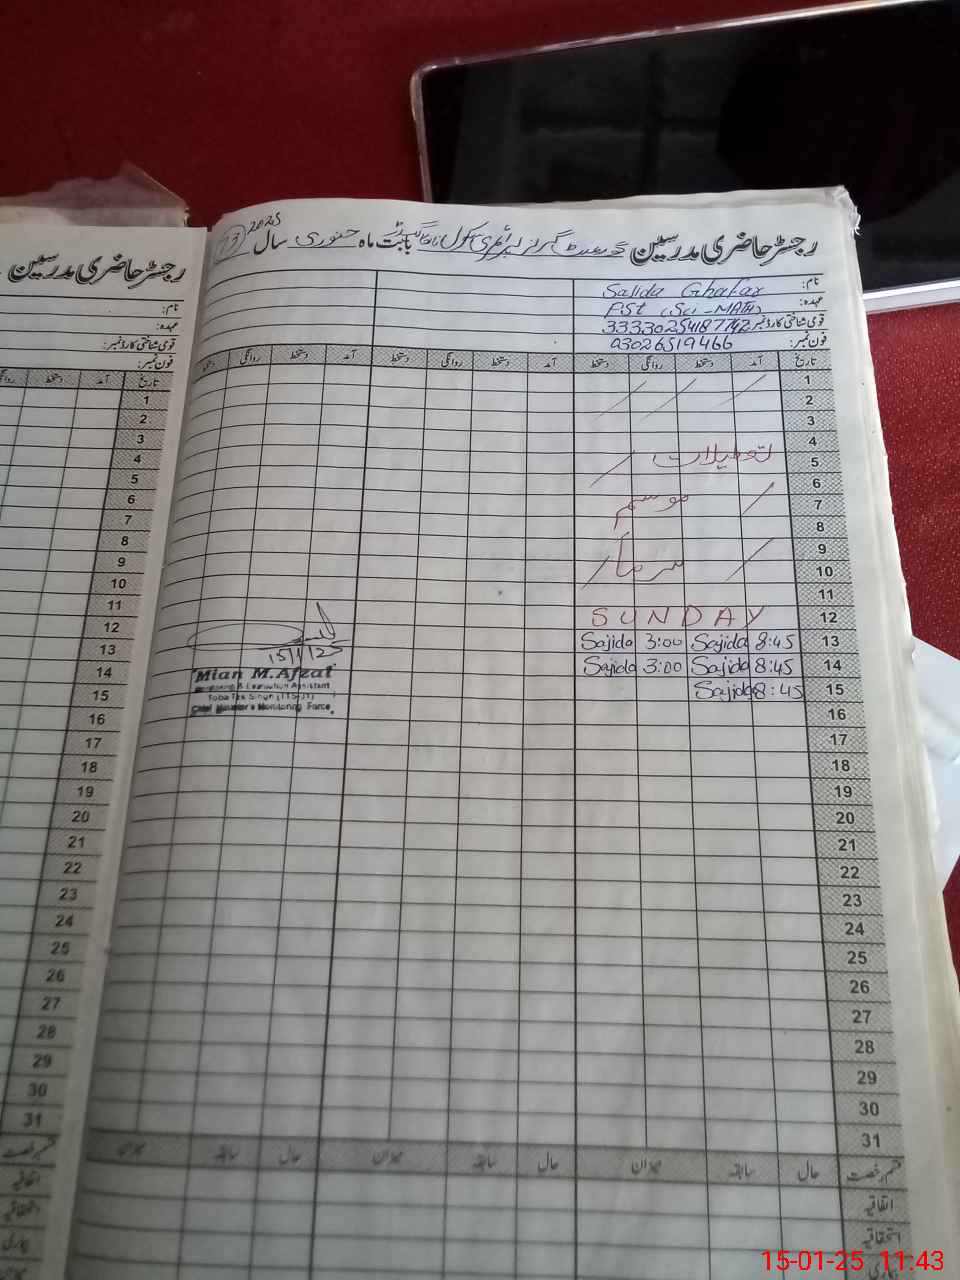 رجسٹر حاضری مدرسین گورنمنٹ گرلز پرائمری سکول بابت ماہ جنوری سال 2025
13
نام: Sajida Ghafar
عہدہ: PST (Sci-MATH)
قومی شناختی کارڈ نمبر 3333025487742
فون نمبر: 03026519466
تاریخ آمد دستخط روانگی دستخط آمد روانگی دستخط آمد دستخط روانگی دستخط
1
2
3
4
تعطیلات
5
6
موسم
7
8
9
سرما
10
11
12 SUNDAY
13 8:45 Sajida 3:00 Sajida
14 8:45 Sajida 3:00 Sajida
15 8:45 Sajida
16
17
18
19
20
21
22
23
24
25
26
27
28
29
30
31
قسم رخصت حال سابقہ میزان حال سابقہ میزان حال سابقہ میزان
اتفاقیہ
استحقاقیہ
بیماری
15/1/25
Mian M.Afzal
Monitoring & Evaluation Assistant
Toba Tek Singh
Chief Minister's Monitoring Force
رجسٹر حاضری مدرسین
نام:
عہدہ:
قومی شناختی کارڈ نمبر:
فون نمبر:
تاریخ آمد دستخط
1
2
3
4
5
6
7
8
9
10
11
12
13
14
15
16
17
18
19
20
21
22
23
24
25
26
27
28
29
30
31
قسم رخصت
اتفاقیہ
استحقاقیہ
بیماری
15-01-25 11:43